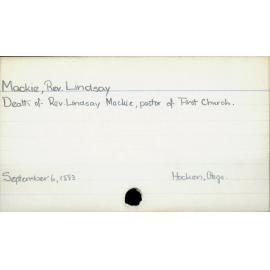 Mackie, Rev. Lindsay
Death of Rev. Lindsay Mackie, pastor of First Church.
September 6, 1883
Hocken, Otago.